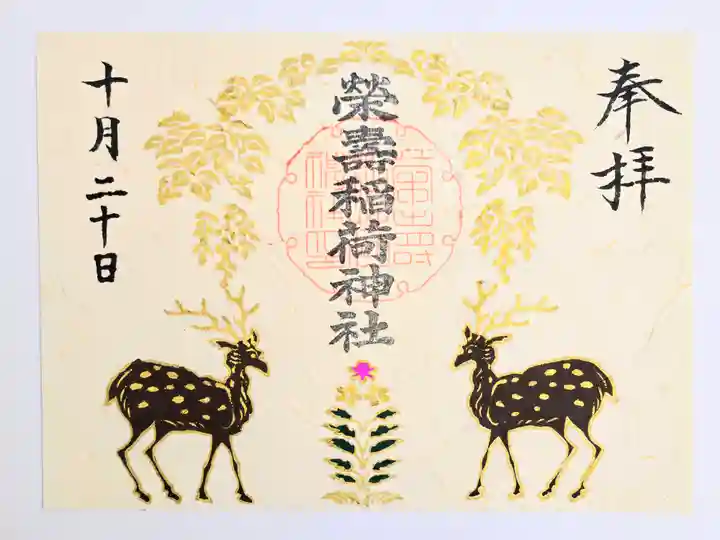 奉拝
榮壽稲荷神社
十月二十日